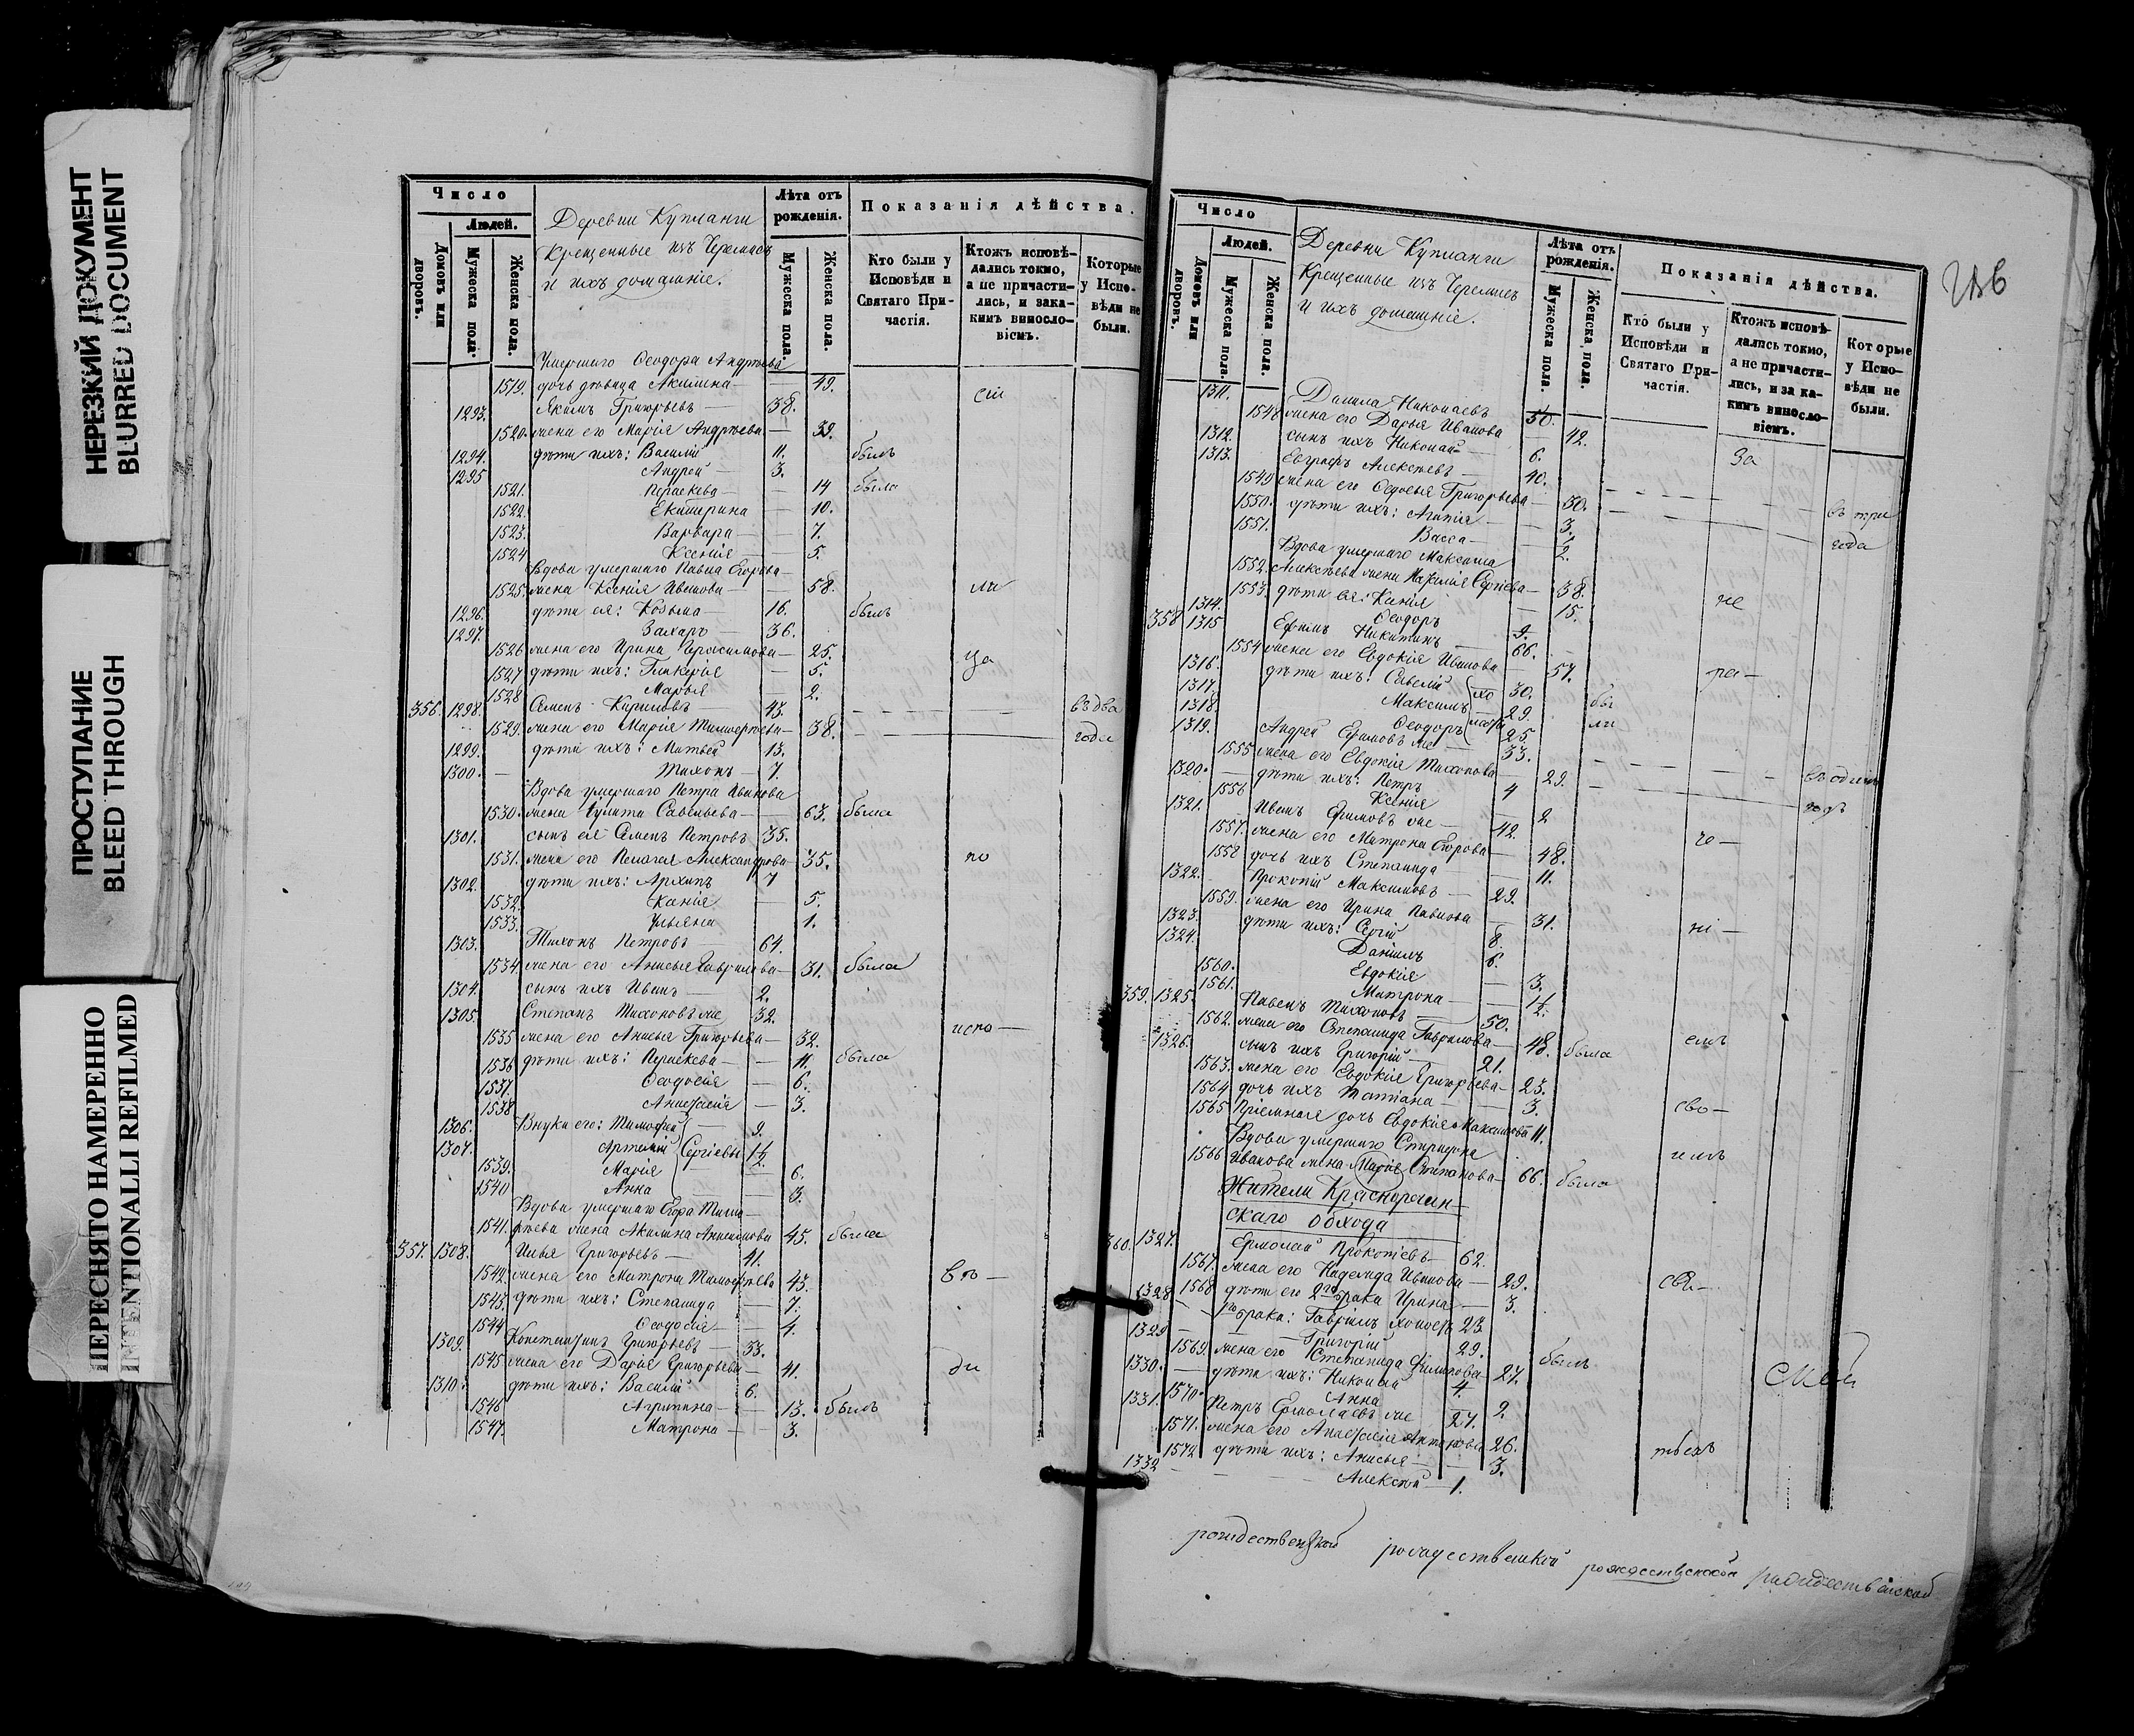 НЕРЕЗКИЙ ДОКУМЕНТ
BLURRED DOCUMENT
ПРОСТУПАНИЕ
BLEED THROUGH
ПЕРЕСНЯТО НАМЕРЕННО
INTENTIONALLI REFILMED
Число
Людей.
Домовъ или дворовъ.
Мужеска пола.
Женска пола.
Деревни Купланги
Крещенные изъ Черемисъ
и ихъ домашніе.
Лѣта отъ рожденія.
Мужеска пола.
Женска пола.
Показанія дѣйства.
Кто были у Исповѣди и Святаго Причастія.
Ктожъ исповѣдались токмо, а не причастились, и закакимъ винословіемъ.
Которые у Исповѣди не были.
Умершаго Ѳеодора Андрѣева
1519. дочь дѣвица Акилина — 49.
1293. Якимъ Григорьевъ — 38.
1520. жена его Марія Андрѣева — 39.
1294. дѣти ихъ: Василій 11. былъ
1295 Андрей — 3.
1521. Параскева — 14 была
1522. Екатерина — 10.
1523. Варвара — 7.
1524 Ксенія — 5.
Вдова умершаго Павла Егорова
1525. жена Ксенія Иванова — 58. ли
1296. дѣти ея: Козьма — 16. былъ
1297. Захаръ — 36.
1526 жена его Ирина Герасимова — 25. за
1527 дѣти ихъ: Гликерія — 5.
1528 Марья — 2.
356. 1298. Семенъ Кириловъ — 43. въ два
1529. жена его Марія Тимоѳеева — 38. года
1299. дѣти ихъ: Матвей 13.
1300. Тихонъ — 7.
Вдова умершаго Петра Иванова
1530. жена Іулита Савельева — 63. была
1301. сынъ ея Семенъ Петровъ 35.
1531. жена его Пелагея Александрова 35. по
1302. дѣти ихъ: Архипъ 7
1532. Ксенія — 5.
1533. Ульяна 1.
1303. Тихонъ Петровъ — 64.
1534. жена его Анисья Гаврилова — 31. была
1304. сынъ ихъ Иванъ — 2.
1305. Степанъ Тихоновъ же 32.
1535 жена его Анисья Григорьева — 32. испо —
1536 дѣти ихъ: Параскева — 11. была
1537. Ѳеодосія — 6.
1538 Анастасія — 3.
1306. Внуки его: Тимофей — 9.
1307. Артемій Сергіевы 1½
1539. Марія — 6.
1540 Анна — 3.
Вдова умершаго Егора Тимо-
1541. фѣева жена Акилина 45. была
357. 1308. Илья Григорьевъ — 41.
1542. жена его Матрона Тимоѳѣева 43. вѣ —
1543. дѣти ихъ: Степанида — 7.
1544 Ѳеодосія — 4.
1309. Константинъ Григорьевъ — 33.
1545 жена его Дарія Григорьева — 41. ди
1310. дѣти ихъ: Василій 6.
1546 Агрипина — 13. былъ
1547. Матрона — 3.
Число
Людей.
Домовъ или дворовъ.
Мужеска пола.
Женска пола.
Деревни Купланги
Крещенные изъ Черемисъ
и ихъ домашніе.
Лѣта отъ рожденія.
Мужеска пола.
Женска пола.
Показанія дѣйства.
Кто были у Исповѣди и Святаго Причастія.
Ктожъ исповѣдались токмо, а не причастились, и за какимъ винословіемъ.
Которые у Исповѣди не были.
1311. Данила Николаевъ 50.
1548 жена его Дарья Иванова — 42.
1312. сынъ ихъ Николай — 6. За
1313. Евграфъ Алексѣевъ — 40.
1549 жена его Ѳедосья Григорьева — 30. въ три
1550. дѣти ихъ: Агапія — 3. года
1551. Васса — 2.
Вдова умершаго Максима
1552. Алексѣева жена Наталія Сергѣева — 38.
1553. дѣти ея: Ксенія — 15. не
1314. Ѳеодоръ 9.
358 1315 Ефимъ Никитинъ — 66.
1554 жена его Евдокія Иванова 57.
1316. дѣти ихъ: Савелій 30. ра —
1317. Максимъ хо 29. бы
1318. Ѳеодоръ лосты 25. ли
1319. Андрей Ефимовъ же — 33.
1555 жена его Евдокія Тихонова — 29. въ одинъ
1320. дѣти ихъ: Петръ 4 годъ
1556 Ксенія 2
1321. Иванъ Ефимовъ же — 42.
1557. жена его Матрона Егорова — 48. че —
1558 дочь ихъ Степанида — 11.
1322. Прокопій Максимовъ — 29.
1559. жена его Ирина Павлова — 31.
1323. дѣти ихъ: Сергій 8. ні —
1324. Даніилъ 6.
1560. Евдокія — 3.
1561. Матрона — 1½.
359. 1325. Павелъ Тихоновъ — 50.
1562. жена его Степанида Гаврилова — 48. была емъ
1326. сынъ ихъ Григорій — 21.
1563. жена его Евдокія Григорьева — 23.
1564 дочь ихъ Татіана — 3. сво —
1565 Пріемная дочь Евдокія Максимова 11.
Вдова умершаго Спиридона
1566 Иванова жена Марія Степанова — 66. была имъ
Жители Красногорин-
скаго Обхода
360. 1327. Ермолай Прокопіевъ — 62.
1567. жена его Надежда Иванова — 29. свя —
1568 дѣти его 2го брака Ирина — 3.
1328 1го брака: Гавріилъ холостъ 23
1329 Григорій 29.
1569 жена его Степанида Филипова 27. былъ
1330. дѣти ихъ: Николай 4
1570. Анна — 2.
1331. Петръ Ермолаевъ же 27.
1571. жена его Анастасія Антонова 26.
1572 дѣти ихъ: Анисья — 3. тьемъ
1332 Алексѣй — 1.
рождественской рождественской рождественской рождественской